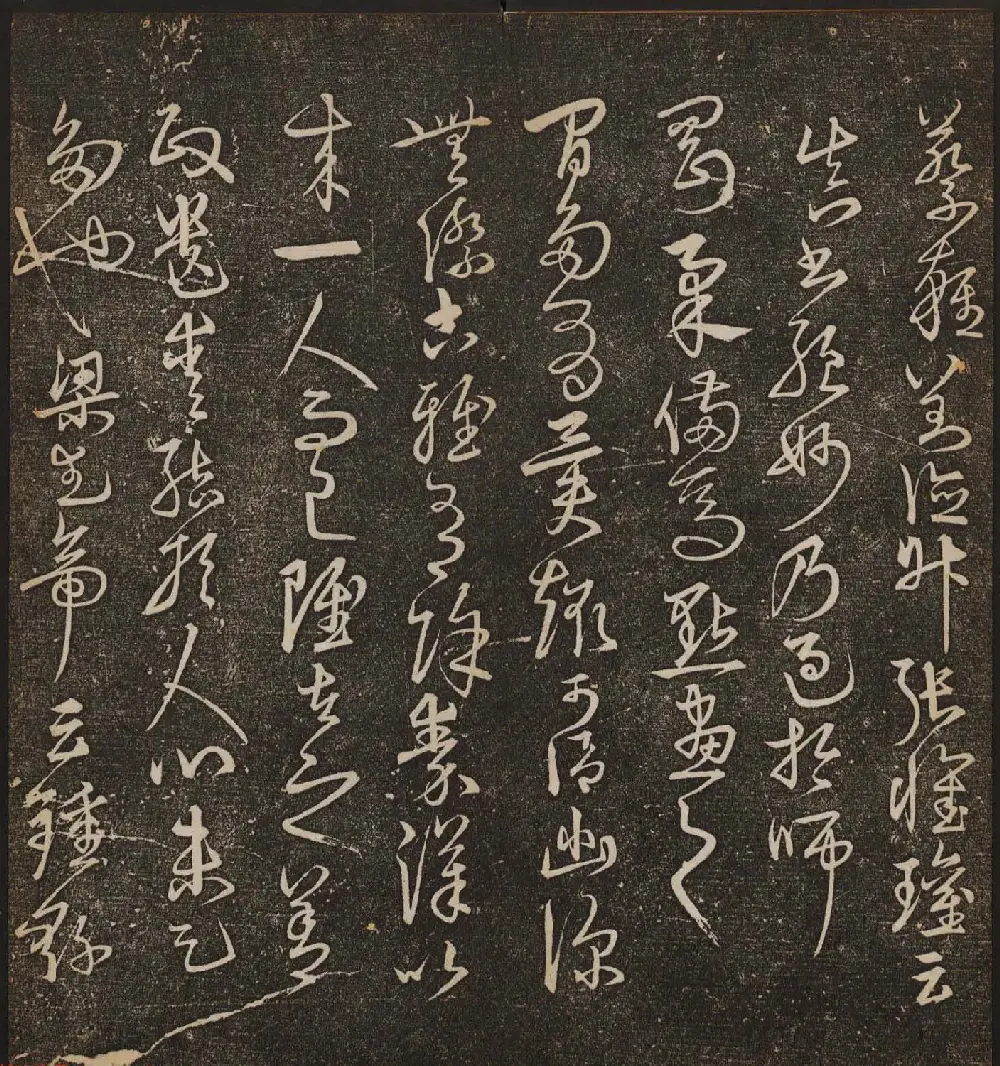 蔡雍劉德升張懷瓘云
真書絕妙乃過於師
剛柔備焉點畫之
間多有異趣可謂幽深
無際古雅有餘秦漢以
來一人而已雖古之善
政遺愛結於人心未足
多也梁武帝云鍾繇